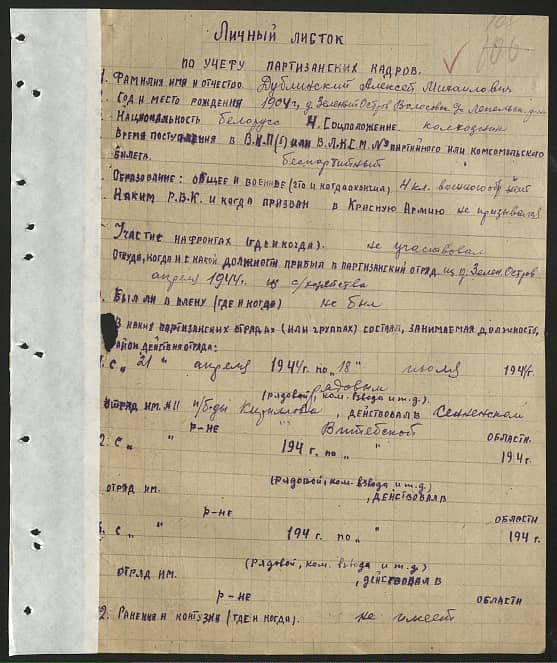 106
Личный листок
по учету партизанских кадров.
1. Фамилия имя и отчество Дублинский Алексей Михайлович
Год и место рождения 1904 г. д. Зеленый Остров
Национальность белорус 4. Соцположение колхозник
Время поступления в В.К.П(б) или В.Л.К.С.М. № партийного или комсомольского
билета. беспартийный
Образование: общее и военное (что и когда окончил) 4 кл. военного обр нет
Каким Р.В.К. и когда призван в Красную Армию не призывался
Участие на фронтах (где и когда). не участвовал
Откуда, когда и с какой должности прибыл в партизанский отряд. из д. Зелен. Остров
апреля 1944 г. из с/хозяйства
Был ли в плену (где и когда) не был
В каких партизанских отрядах (или группах) состоял, занимаемая должность,
район действия отряда:
1. с „21" апреля 1944 г. по „18" июля 1944 г.
рядовым
(рядовой, ком. взвода и т.д.)
отряд им. №11 п/б-ды Кириллова, действовал в Сенненском
р-не Витебской области.
2. с „ " 194 г. по „ " 194 г.
(рядовой, ком. взвода и т.д.)
отряд им. , действовал в
р-не области
с „ " 194 г. по „ " 194 г.
(рядовой, ком. взвода и т.д.)
отряд им. , действовал в
р-не области
2. Ранения и контузии (где и когда). не имеет